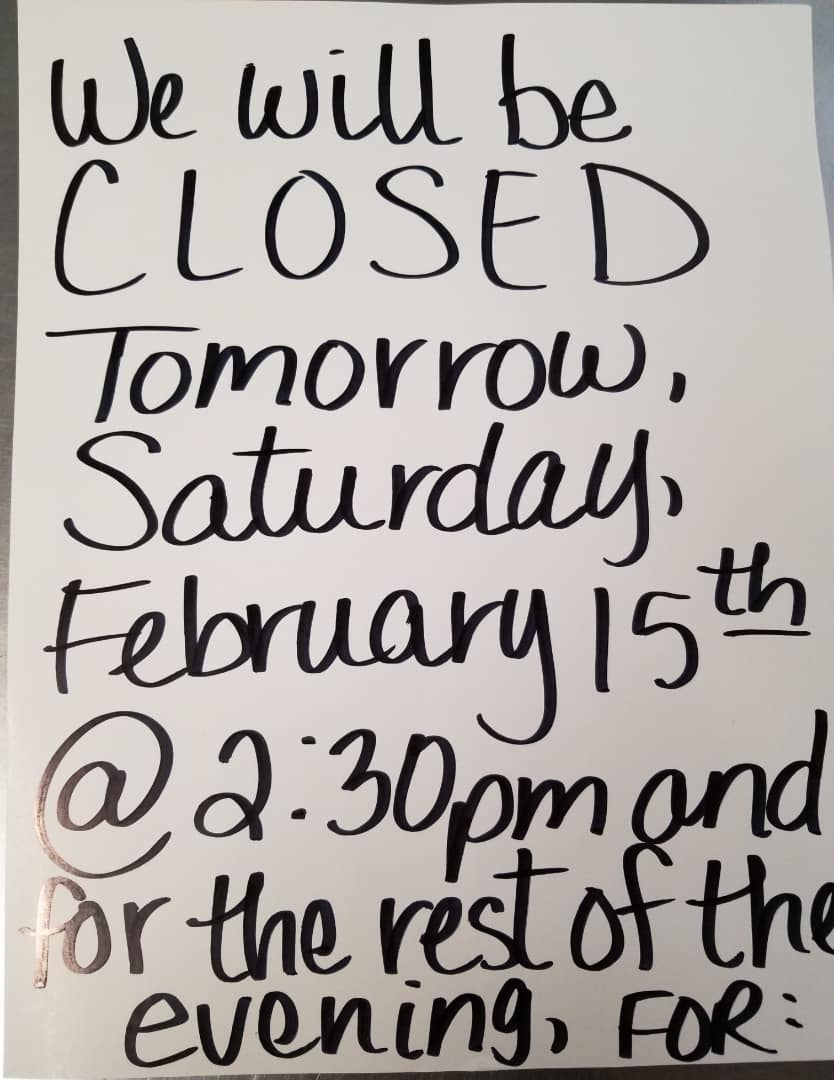 We will be
CLOSED
Tomorrow,
Saturday,
February 15th
@ 2:30pm and
for the rest of the
evening, FOR: